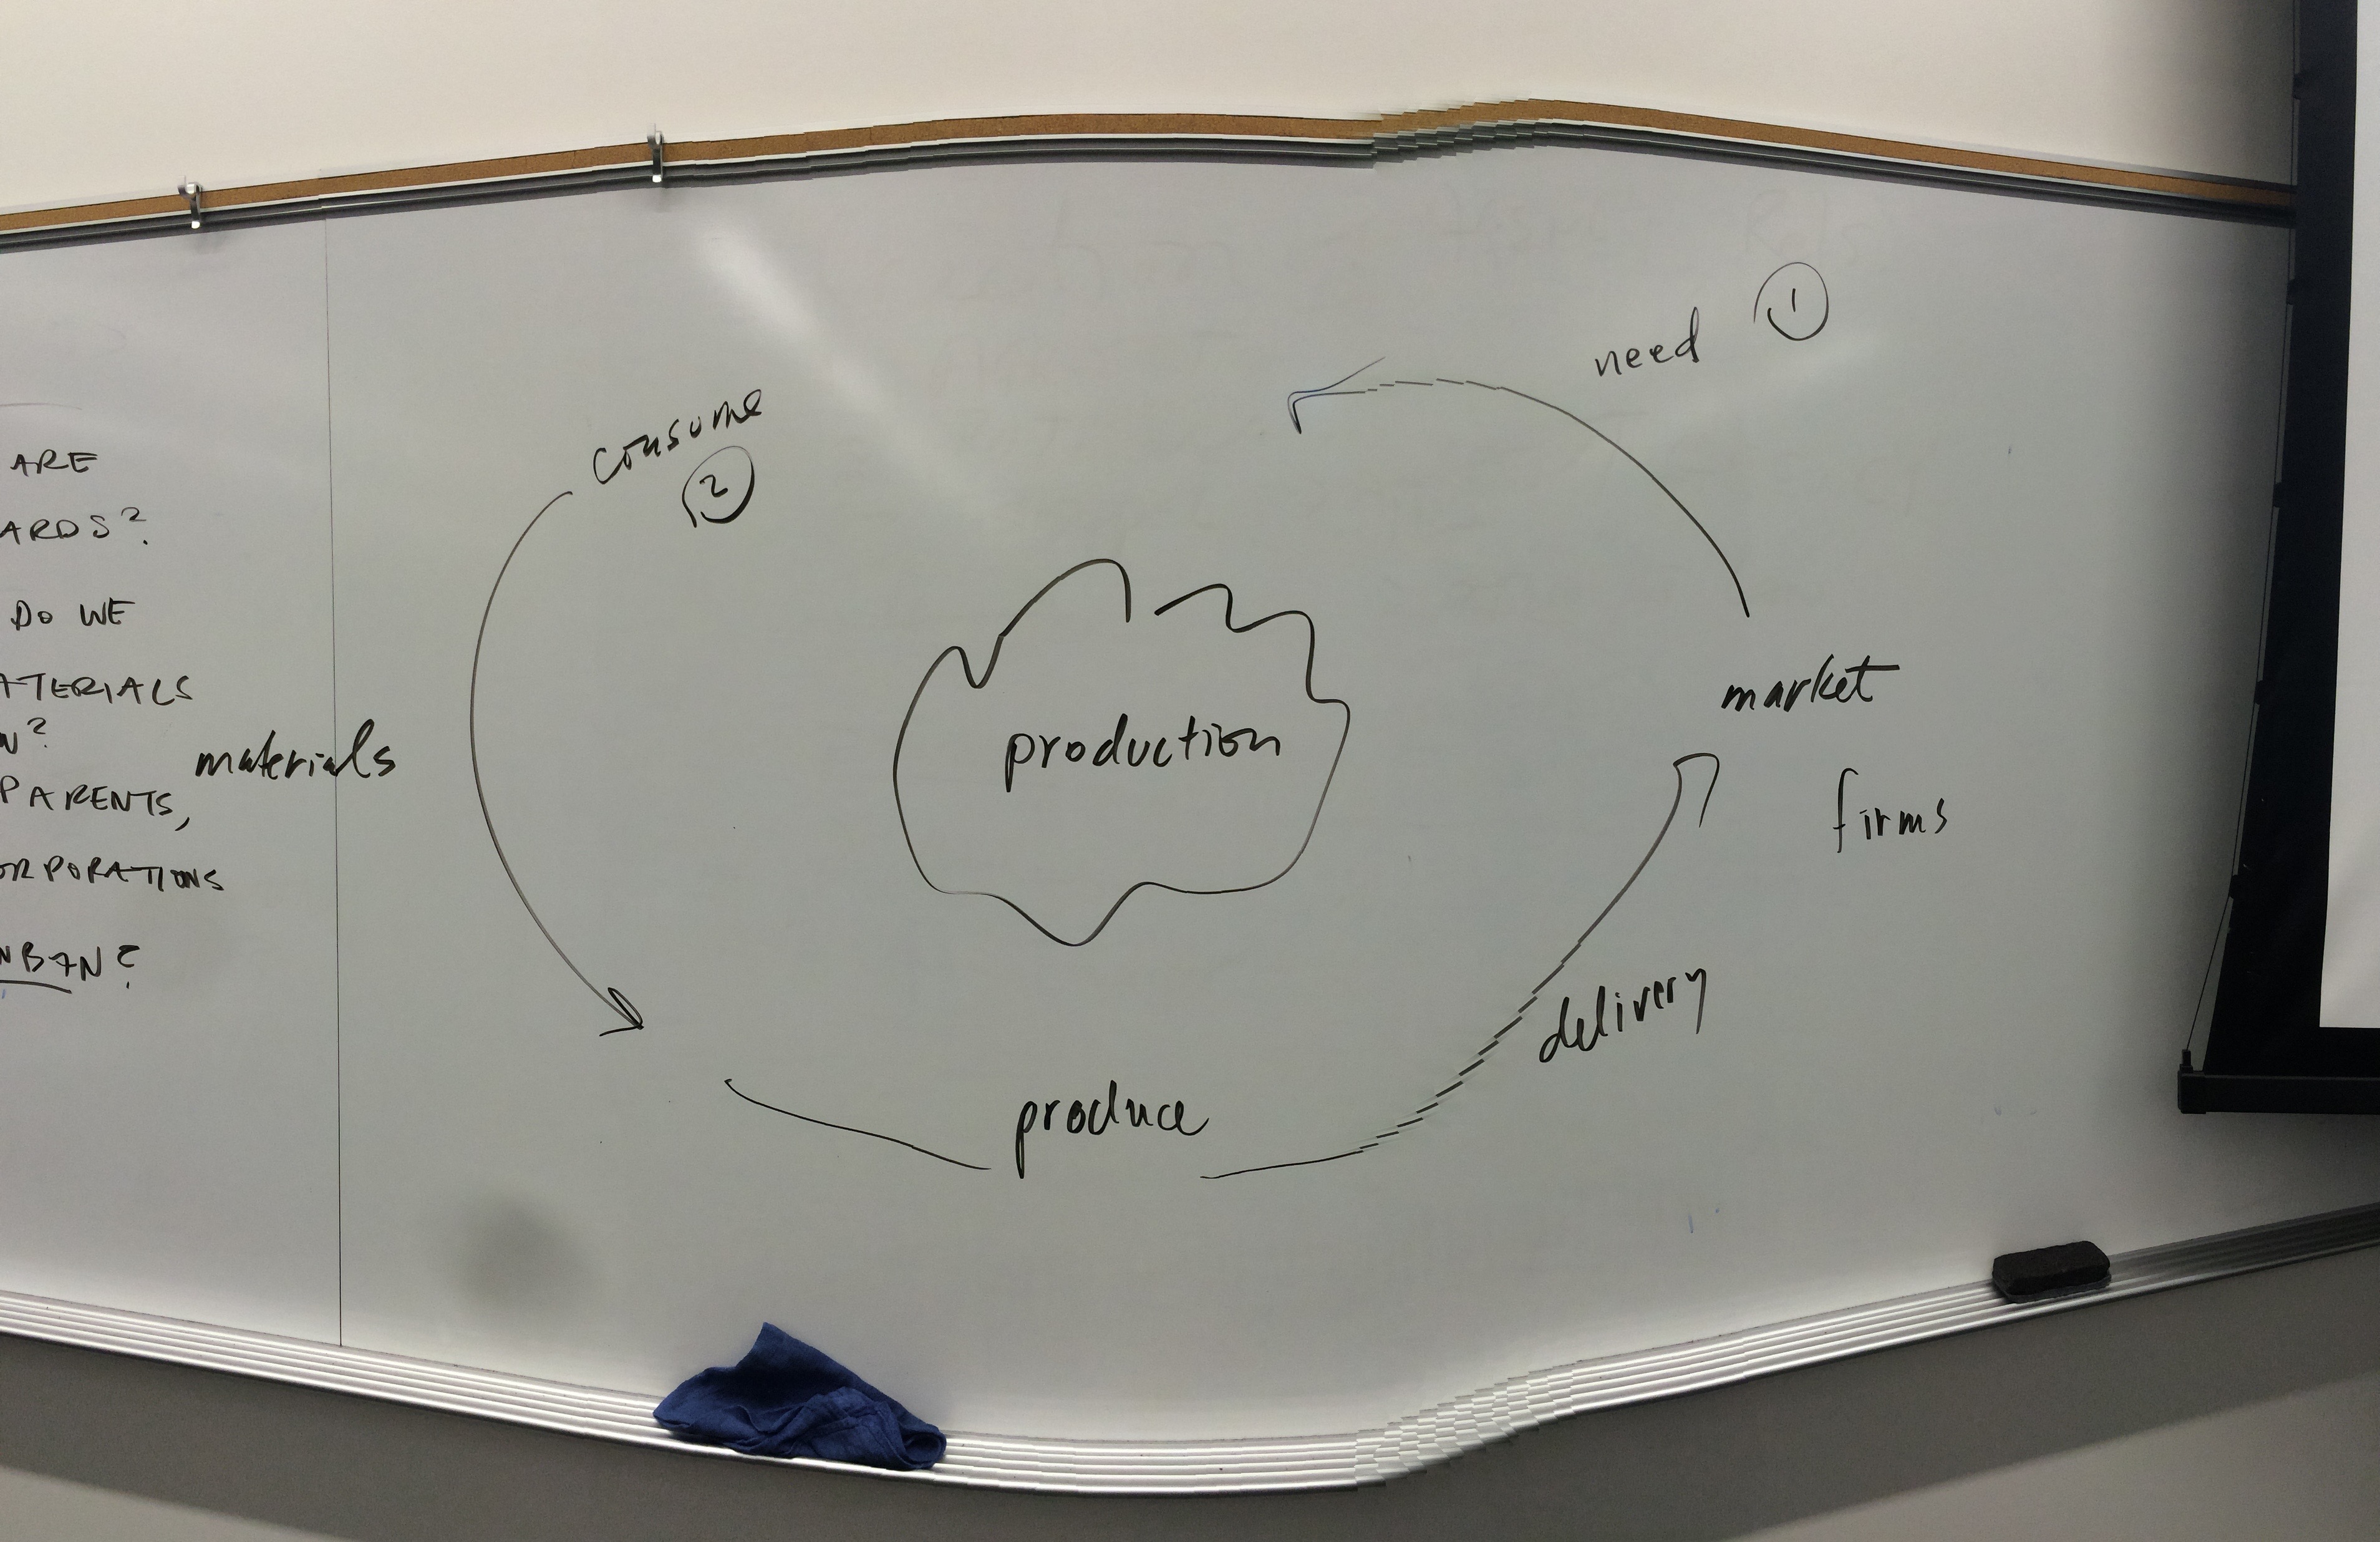 ARE
ARDS?
DO WE
ATERIALS
N?
PARENTS,
ORPORATIONS
NBAN?
need 1
consume
2
materials
production
market
firms
delivery
produce